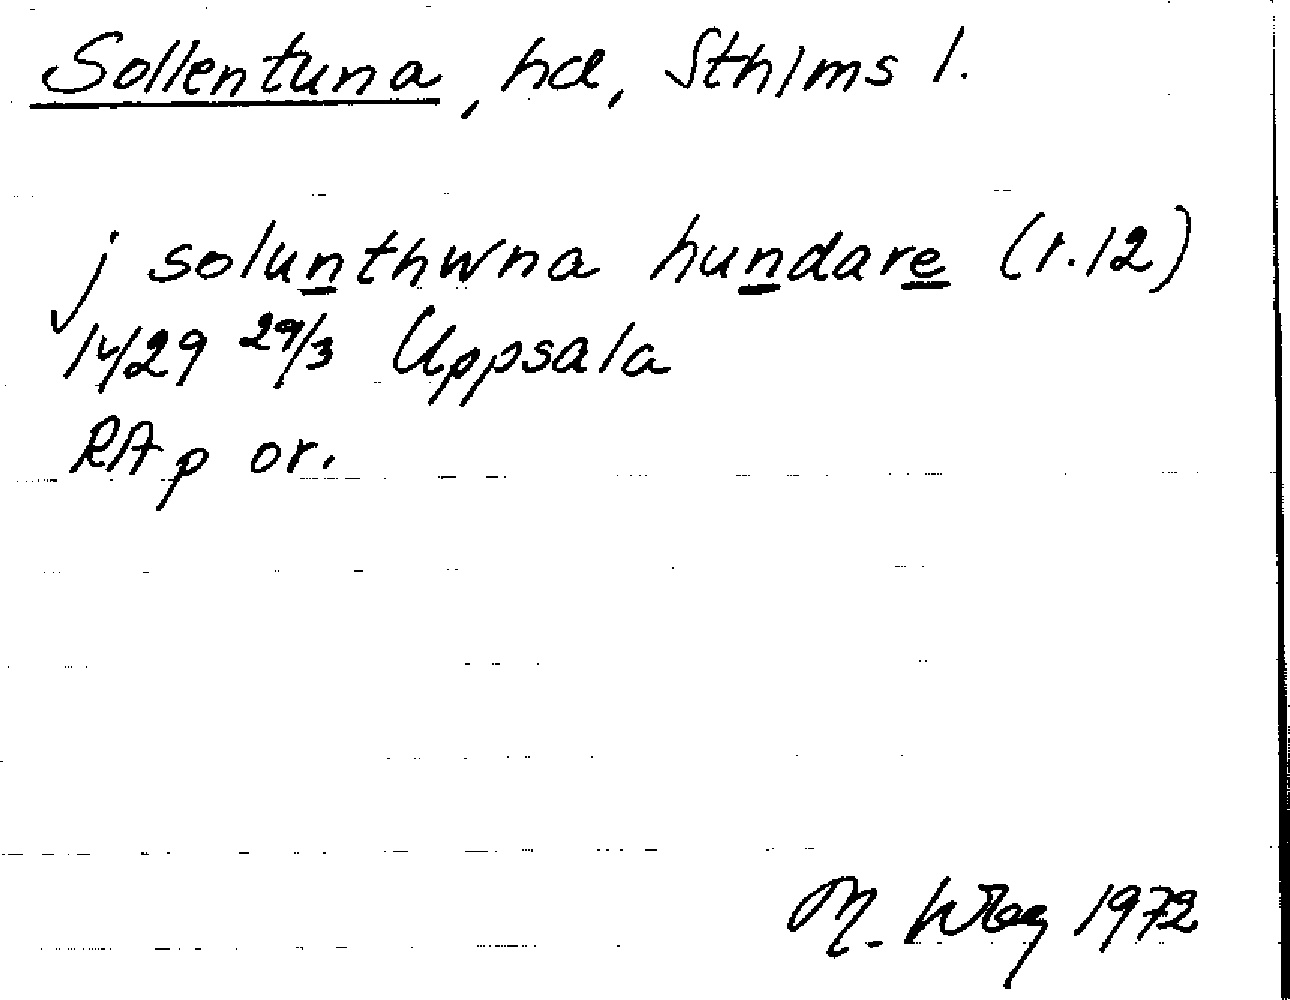 Sollentuna, hd, Sthlms l.
j solunthwna hundare (r.12)
1429 29/3 Uppsala
RAp or.
M. Wbg 1972